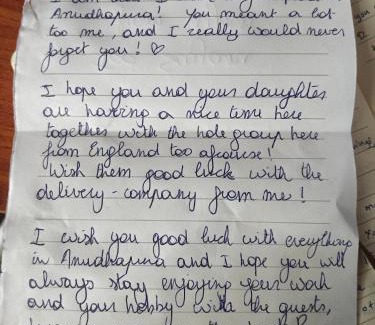 Anudhapura! You meant a lot
too me, and I really would never
forget you! ♡
I hope you and your daughter
are having a nice time here
together with the hole group here
from England too afcourse!
Wish them good luck with the
delivery-company from me!
I wish you good luck with everything
in Anudhapura and I hope you will
always stay enjoying your work
and your hobby with the guests,